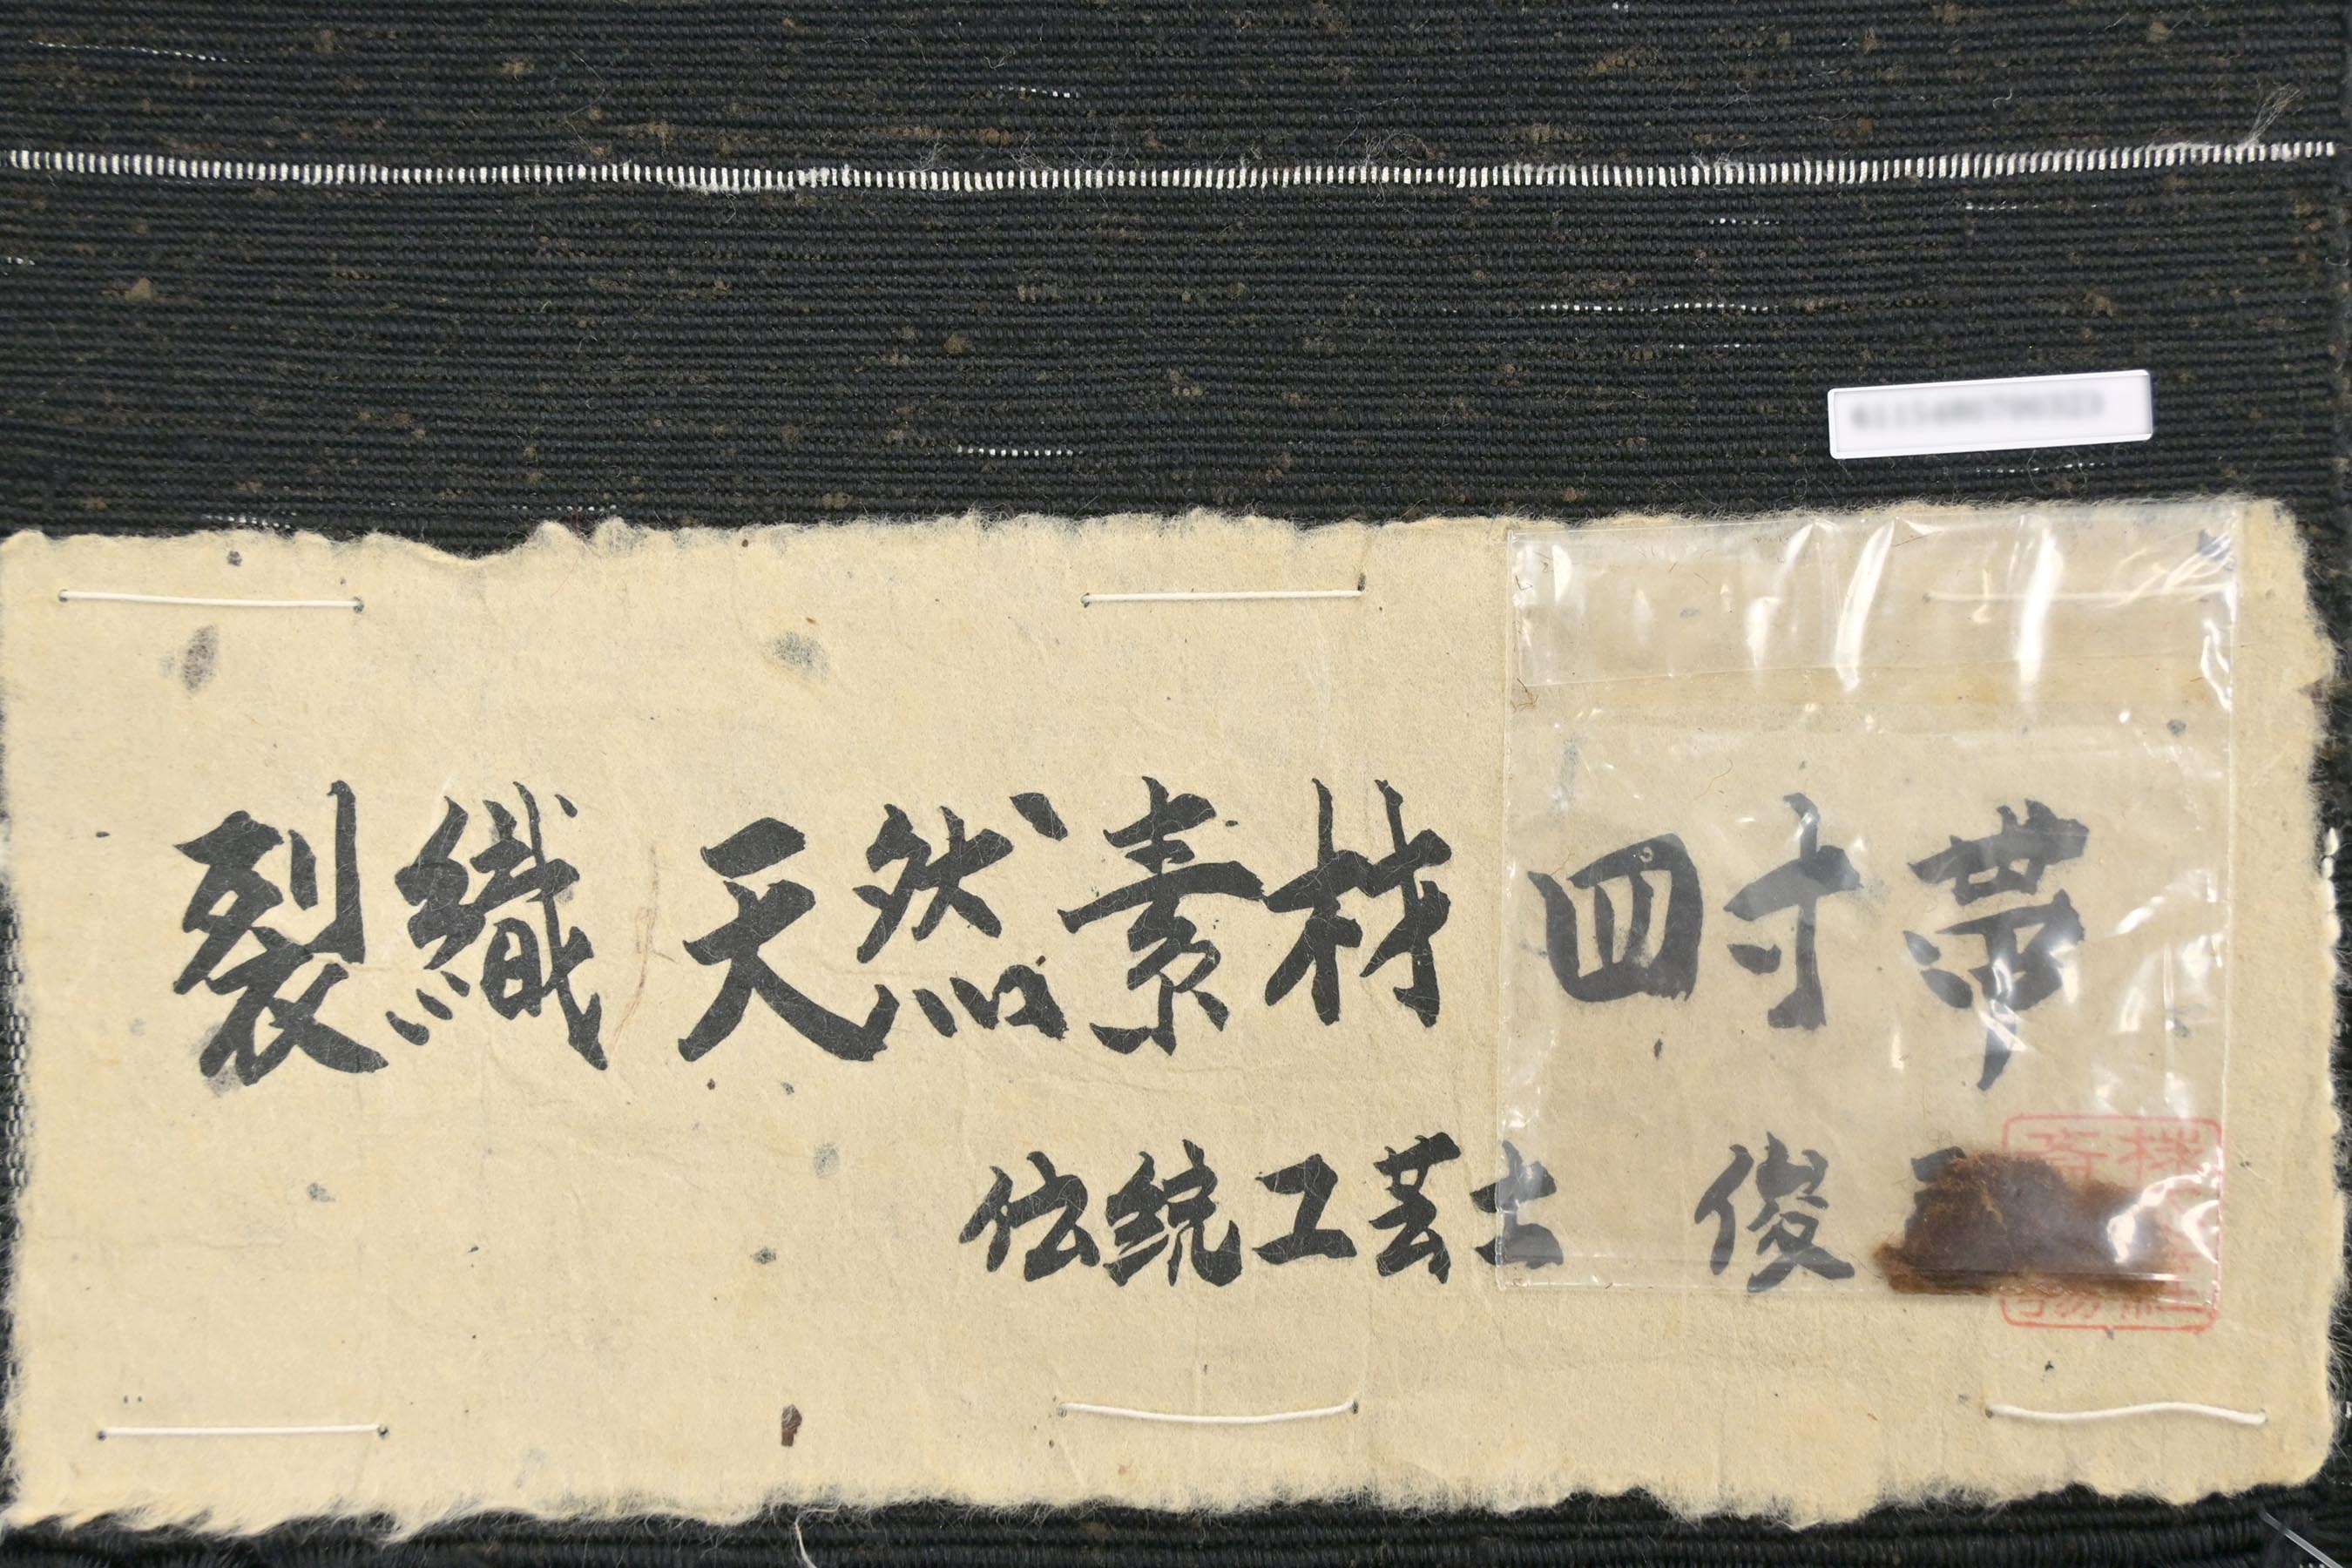 裂織 天然素材 四寸帯
伝統工芸士 俊